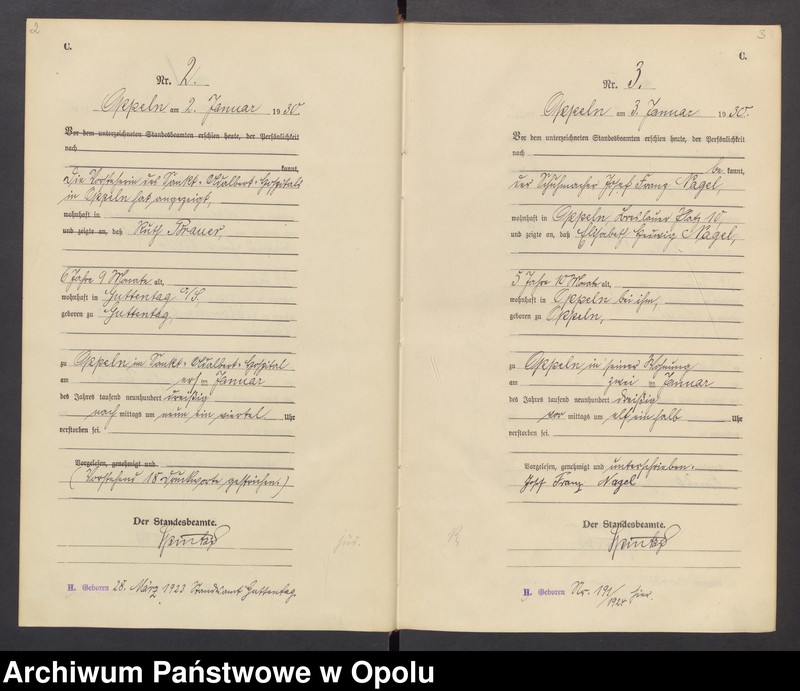 2
C.
Nr. 2.
Oppeln am 2. Januar 1930.
Vor dem unterzeichneten Standesbeamten erschien heute, der Persönlichkeit
nach
kannt,
Die Vorsteherin des Sankt-Adalbert-Hospitals
in Oppeln hat angezeigt,
wohnhaft in
und zeigte an, daß Ruth Brauer,
6 Jahre 9 Monate alt,
wohnhaft in Guttentag O/S,
geboren zu Guttentag,
zu Oppeln im Sankt-Adalbert-Hospital
am ersten Januar
des Jahres tausend neunhundert dreißig
nach mittags um neun ein viertel Uhr
verstorben sei.
Vorgelesen, genehmigt und
(Vorstehend 18 Druckworte gestrichen.)
Der Standesbeamte.
H. Geboren 28. März 1923 Standesamt Guttentag.
3
C.
Nr. 3.
Oppeln am 3. Januar 1930.
Vor dem unterzeichneten Standesbeamten erschien heute, der Persönlichkeit
nach
be kannt,
der Schuhmacher Josef Franz Nagel,
wohnhaft in Oppeln Breslauer Platz 10,
und zeigte an, daß Elisabeth Hedwig Nagel,
5 Jahre 10 Monate alt,
wohnhaft in Oppeln bei ihm,
geboren zu Oppeln,
zu Oppeln in seiner Wohnung
am zweiten Januar
des Jahres tausend neunhundert dreißig
vor mittags um elf ein halb Uhr
verstorben sei.
Vorgelesen, genehmigt und unterschrieben.
Josef Franz Nagel
Der Standesbeamte.
H. Geboren Nr. 191/1924 hier.
Archiwum Państwowe w Opolu